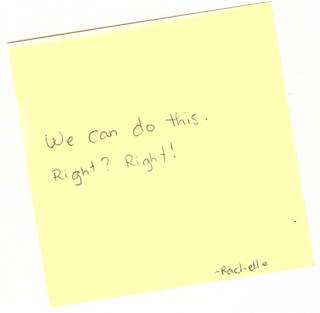 We can do this.
Right? Right!
-Rachelle